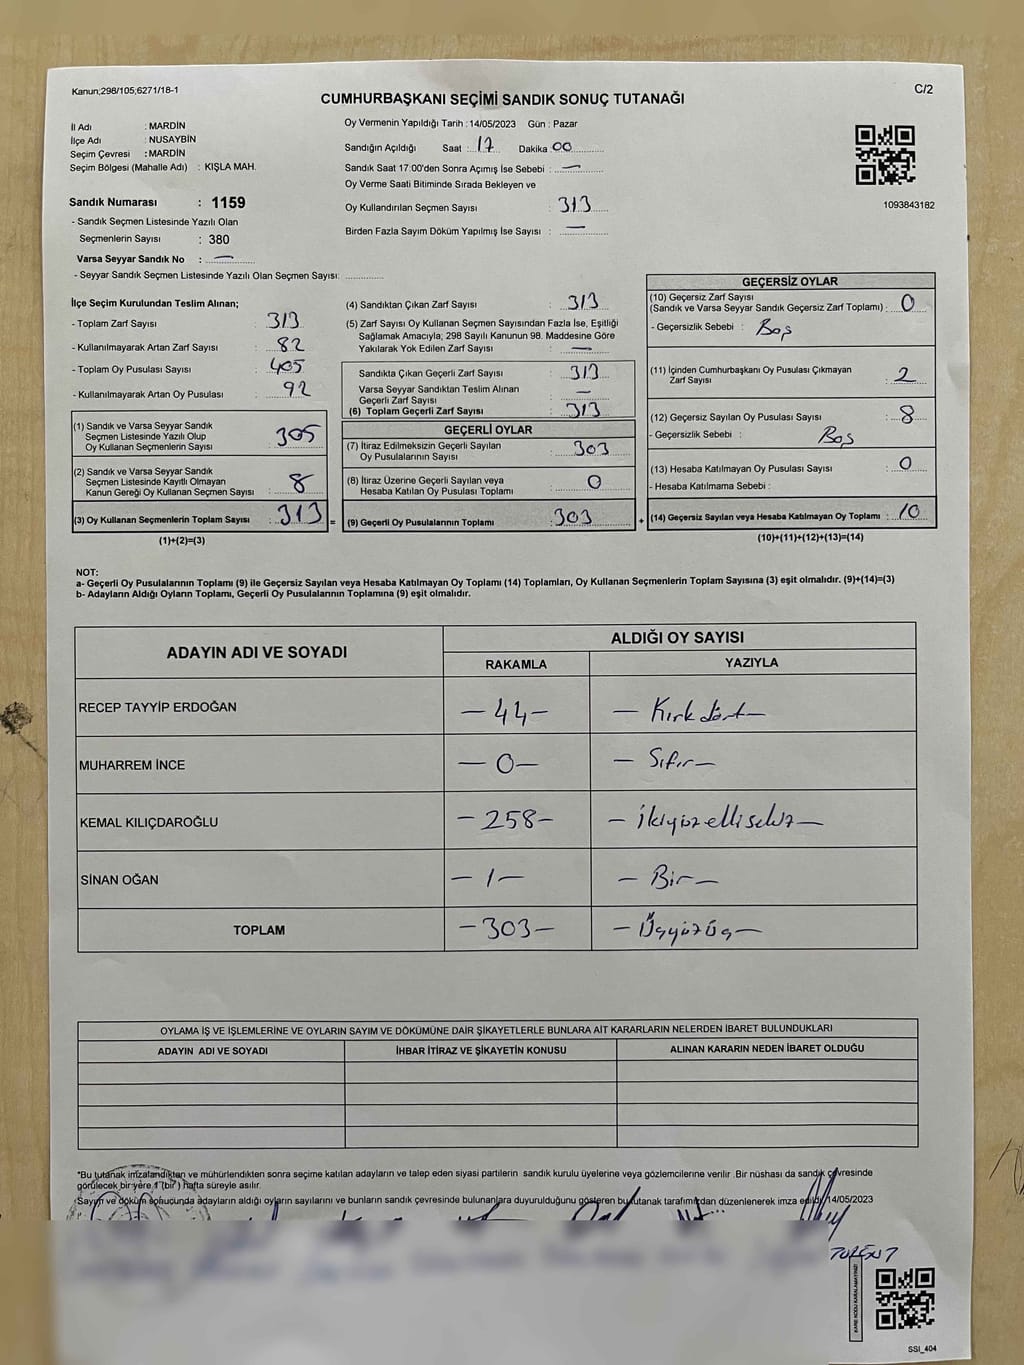 Kanun;298/105;6271/18-1
C/2
CUMHURBAŞKANI SEÇİMİ SANDIK SONUÇ TUTANAĞI
İl Adı : MARDİN
İlçe Adı : NUSAYBİN
Seçim Çevresi : MARDİN
Seçim Bölgesi (Mahalle Adı) : KIŞLA MAH.
Sandık Numarası : 1159
- Sandık Seçmen Listesinde Yazılı Olan
Seçmenlerin Sayısı : 380
Varsa Seyyar Sandık No : —
- Seyyar Sandık Seçmen Listesinde Yazılı Olan Seçmen Sayısı: ..............
Oy Vermenin Yapıldığı Tarih : 14/05/2023 Gün : Pazar
Sandığın Açıldığı Saat : 17 Dakika 00
Sandık Saat 17:00'den Sonra Açımış İse Sebebi : —
Oy Verme Saati Bitiminde Sırada Bekleyen ve
Oy Kullandırılan Seçmen Sayısı : 313
Birden Fazla Sayım Döküm Yapılmış İse Sayısı : —
1093843182
İlçe Seçim Kurulundan Teslim Alınan;
- Toplam Zarf Sayısı : 313
- Kullanılmayarak Artan Zarf Sayısı : 82
- Toplam Oy Pusulası Sayısı : 405
- Kullanılmayarak Artan Oy Pusulası : 92
(1) Sandık ve Varsa Seyyar Sandık
Seçmen Listesinde Yazılı Olup
Oy Kullanan Seçmenlerin Sayısı : 305
(2) Sandık ve Varsa Seyyar Sandık
Seçmen Listesinde Kayıtlı Olmayan
Kanun Gereği Oy Kullanan Seçmen Sayısı : 8
(3) Oy Kullanan Seçmenlerin Toplam Sayısı : 313 =
(1)+(2)=(3)
(4) Sandıktan Çıkan Zarf Sayısı : 313
(5) Zarf Sayısı Oy Kullanan Seçmen Sayısından Fazla İse, Eşitliği
Sağlamak Amacıyla; 298 Sayılı Kanunun 98. Maddesine Göre
Yakılarak Yok Edilen Zarf Sayısı : —
Sandıkta Çıkan Geçerli Zarf Sayısı : 313
Varsa Seyyar Sandıktan Teslim Alınan
Geçerli Zarf Sayısı : —
(6) Toplam Geçerli Zarf Sayısı : 313
GEÇERLİ OYLAR
(7) İtiraz Edilmeksizin Geçerli Sayılan
Oy Pusulalarının Sayısı : 303
(8) İtiraz Üzerine Geçerli Sayılan veya
Hesaba Katılan Oy Pusulası Toplamı : 0
(9) Geçerli Oy Pusulalarının Toplamı : 303 +
GEÇERSİZ OYLAR
(10) Geçersiz Zarf Sayısı
(Sandık ve Varsa Seyyar Sandık Geçersiz Zarf Toplamı) : 0
- Geçersizlik Sebebi : Boş
(11) İçinden Cumhurbaşkanı Oy Pusulası Çıkmayan
Zarf Sayısı : 2
(12) Geçersiz Sayılan Oy Pusulası Sayısı : 8
- Geçersizlik Sebebi : Boş
(13) Hesaba Katılmayan Oy Pusulası Sayısı : 0
- Hesaba Katılmama Sebebi :
(14) Geçersiz Sayılan veya Hesaba Katılmayan Oy Toplamı : 10
(10)+(11)+(12)+(13)=(14)
NOT:
a- Geçerli Oy Pusulalarının Toplamı (9) ile Geçersiz Sayılan veya Hesaba Katılmayan Oy Toplamı (14) Toplamları, Oy Kullanan Seçmenlerin Toplam Sayısına (3) eşit olmalıdır. (9)+(14)=(3)
b- Adayların Aldığı Oyların Toplamı, Geçerli Oy Pusulalarının Toplamına (9) eşit olmalıdır.
ADAYIN ADI VE SOYADI
ALDIĞI OY SAYISI
RAKAMLA YAZIYLA
RECEP TAYYİP ERDOĞAN — 44 — — Kırkdört —
MUHARREM İNCE — 0 — — Sıfır —
KEMAL KILIÇDAROĞLU — 258 — — İkiyüzellisekiz —
SİNAN OĞAN — 1 — — Bir —
TOPLAM — 303 — — Üçyüzüç —
OYLAMA İŞ VE İŞLEMLERİNE VE OYLARIN SAYIM VE DÖKÜMÜNE DAİR ŞİKAYETLERLE BUNLARA AİT KARARLARIN NELERDEN İBARET BULUNDUKLARI
ADAYIN ADI VE SOYADI İHBAR İTİRAZ VE ŞİKAYETİN KONUSU ALINAN KARARIN NEDEN İBARET OLDUĞU
*Bu tutanak imzalandıktan ve mühürlendikten sonra seçime katılan adayların ve talep eden siyasi partilerin sandık kurulu üyelerine veya gözlemcilerine verilir .Bir nüshası da sandık çevresinde
görülecek bir yere 1 (bir ) hafta süreyle asılır.
Sayım ve döküm sonucunda adayların aldığı oyların sayılarını ve bunların sandık çevresinde bulunanlara duyurulduğunu gösteren bu tutanak tarafımızdan düzenlenerek imza edildi. 14/05/2023
SSI_404